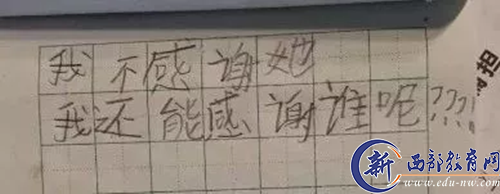 我不感谢她
我还能感谢谁呢???!
新 西部教育网
www.edu-nw.com